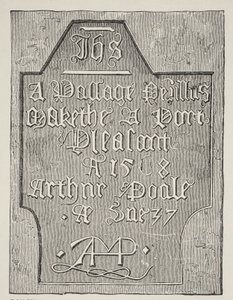 IHS
A Passage Perillus
Makethe A Port
Pleasant
A 15 8
Arthur Poole
A Sue 37
AP